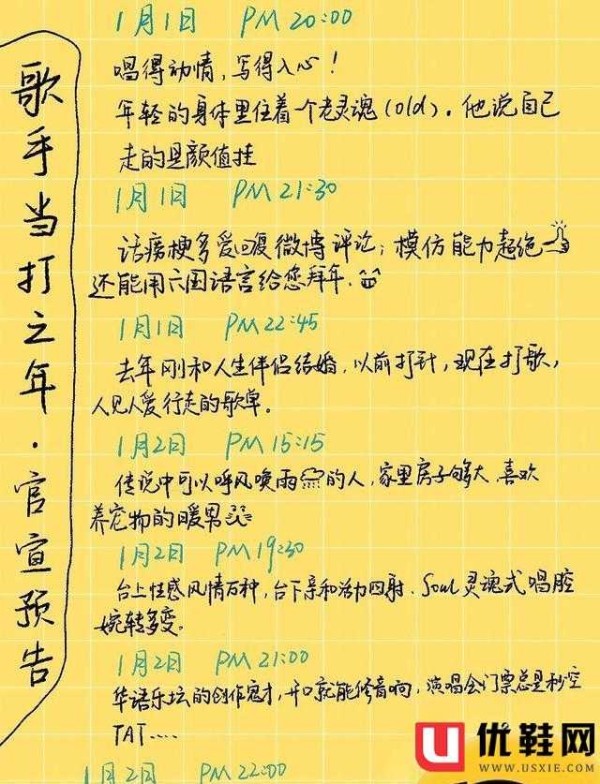 歌手当打之年·官宣预告
1月1日 PM 20:00
唱得动情，写得入心！
年轻的身体里住着一个老灵魂(old)．他说自己
走的是颜值挂
1月1日 PM 21:30
话痨梗多爱回复微博评论；模仿能力超绝
还能用六国语言给您拜年．
1月1日 PM 22:45
去年刚和人生伴侣结婚，以前打针，现在打歌，
人见人爱行走的歌单。
1月2日 PM 15:15
传说中可以呼风唤雨的人，家里房子够大，喜欢
养宠物的暖男
1月2日 PM 19:30
台上性感风情万种，台下亲和活力四射．Soul灵魂式唱腔
婉转多变。
1月2日 PM 21:00
华语乐坛的创作鬼才，开口就能修音响，演唱会门票总是秒空
TAT....
1月2日 PM 22:00
U 优鞋网
WWW.USXIE.COM